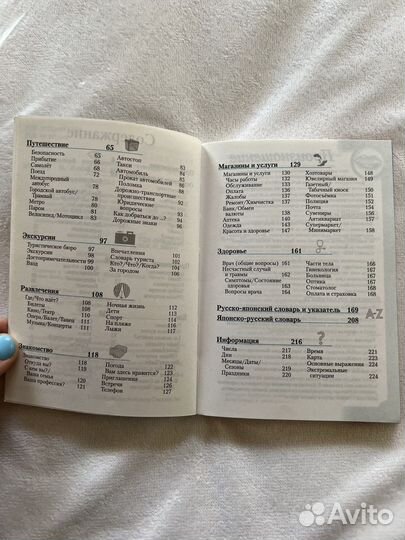 Содержание
Путешествие 65
Безопасность 65
Прибытие 66
Самолёт 68
Поезд 72
Международный
автобус 78
Городской автобус/
Трамвай 78
Метро 80
Паром 81
Велосипед/Мотоцикл 83
Автостоп 83
Такси 84
Автомобиль 85
Прокат автомобилей 86
Поломка 88
Дорожно-транспортные
происшествия 92
Юридические
вопросы 93
Как добраться до ...? 94
Дорожные знаки 96
Экскурсии 97
Туристическое бюро 97
Экскурсии 98
Достопримечательности 99
Вход 100
Впечатления 101
Словарь туриста 102
Кто?/Что?/Когда? 104
За городом 106
Развлечения 108
Где/Что идёт? 108
Билеты 109
Кино/Театр 110
Опера/Балет/Танец 111
Музыка/Концерты 111
Ночная жизнь 112
Дети 113
Спорт 114
На пляже 116
Лыжи 117
Знакомство 118
Знакомство 118
Откуда вы? 119
С кем вы?/
Ваша семья 120
Ваша профессия? 121
Погода 122
Вам здесь нравится? 123
Приглашения 124
Встречи 126
Телефон 127
Магазины и услуги 129
Магазины и услуги 130
Часы работы 132
Обслуживание 133
Оплата 136
Жалобы 137
Ремонт/Химчистка 137
Банк/Обмен
валюты 138
Аптека 140
Одежда 143
Красота и здоровье 147
Хозтовары 148
Ювелирный магазин 149
Газетный/
Табачный киоск 150
Фотосъёмка 151
Полиция 152
Почта 154
Сувениры 156
Антиквариат 157
Супермаркет/
Минимаркет 158
Здоровье 161
Врач (общие вопросы) 161
Несчастный случай
и травмы 162
Симптомы/Состояние
здоровья 163
Вопросы врача 163
Части тела 166
Гинеколог 167
Больница 167
Окулист 167
Стоматолог 168
Оплата и страховка 168
Русско-японский словарь и указатель 169
Японско-русский словарь 208
A-Z
Информация 216
Числа 217
Дни 218
Месяцы/Даты/
Сезоны 219
Праздники 220
Время 221
Карта 223
Основные выражения 224
Экстремальные
ситуации 224
Avito